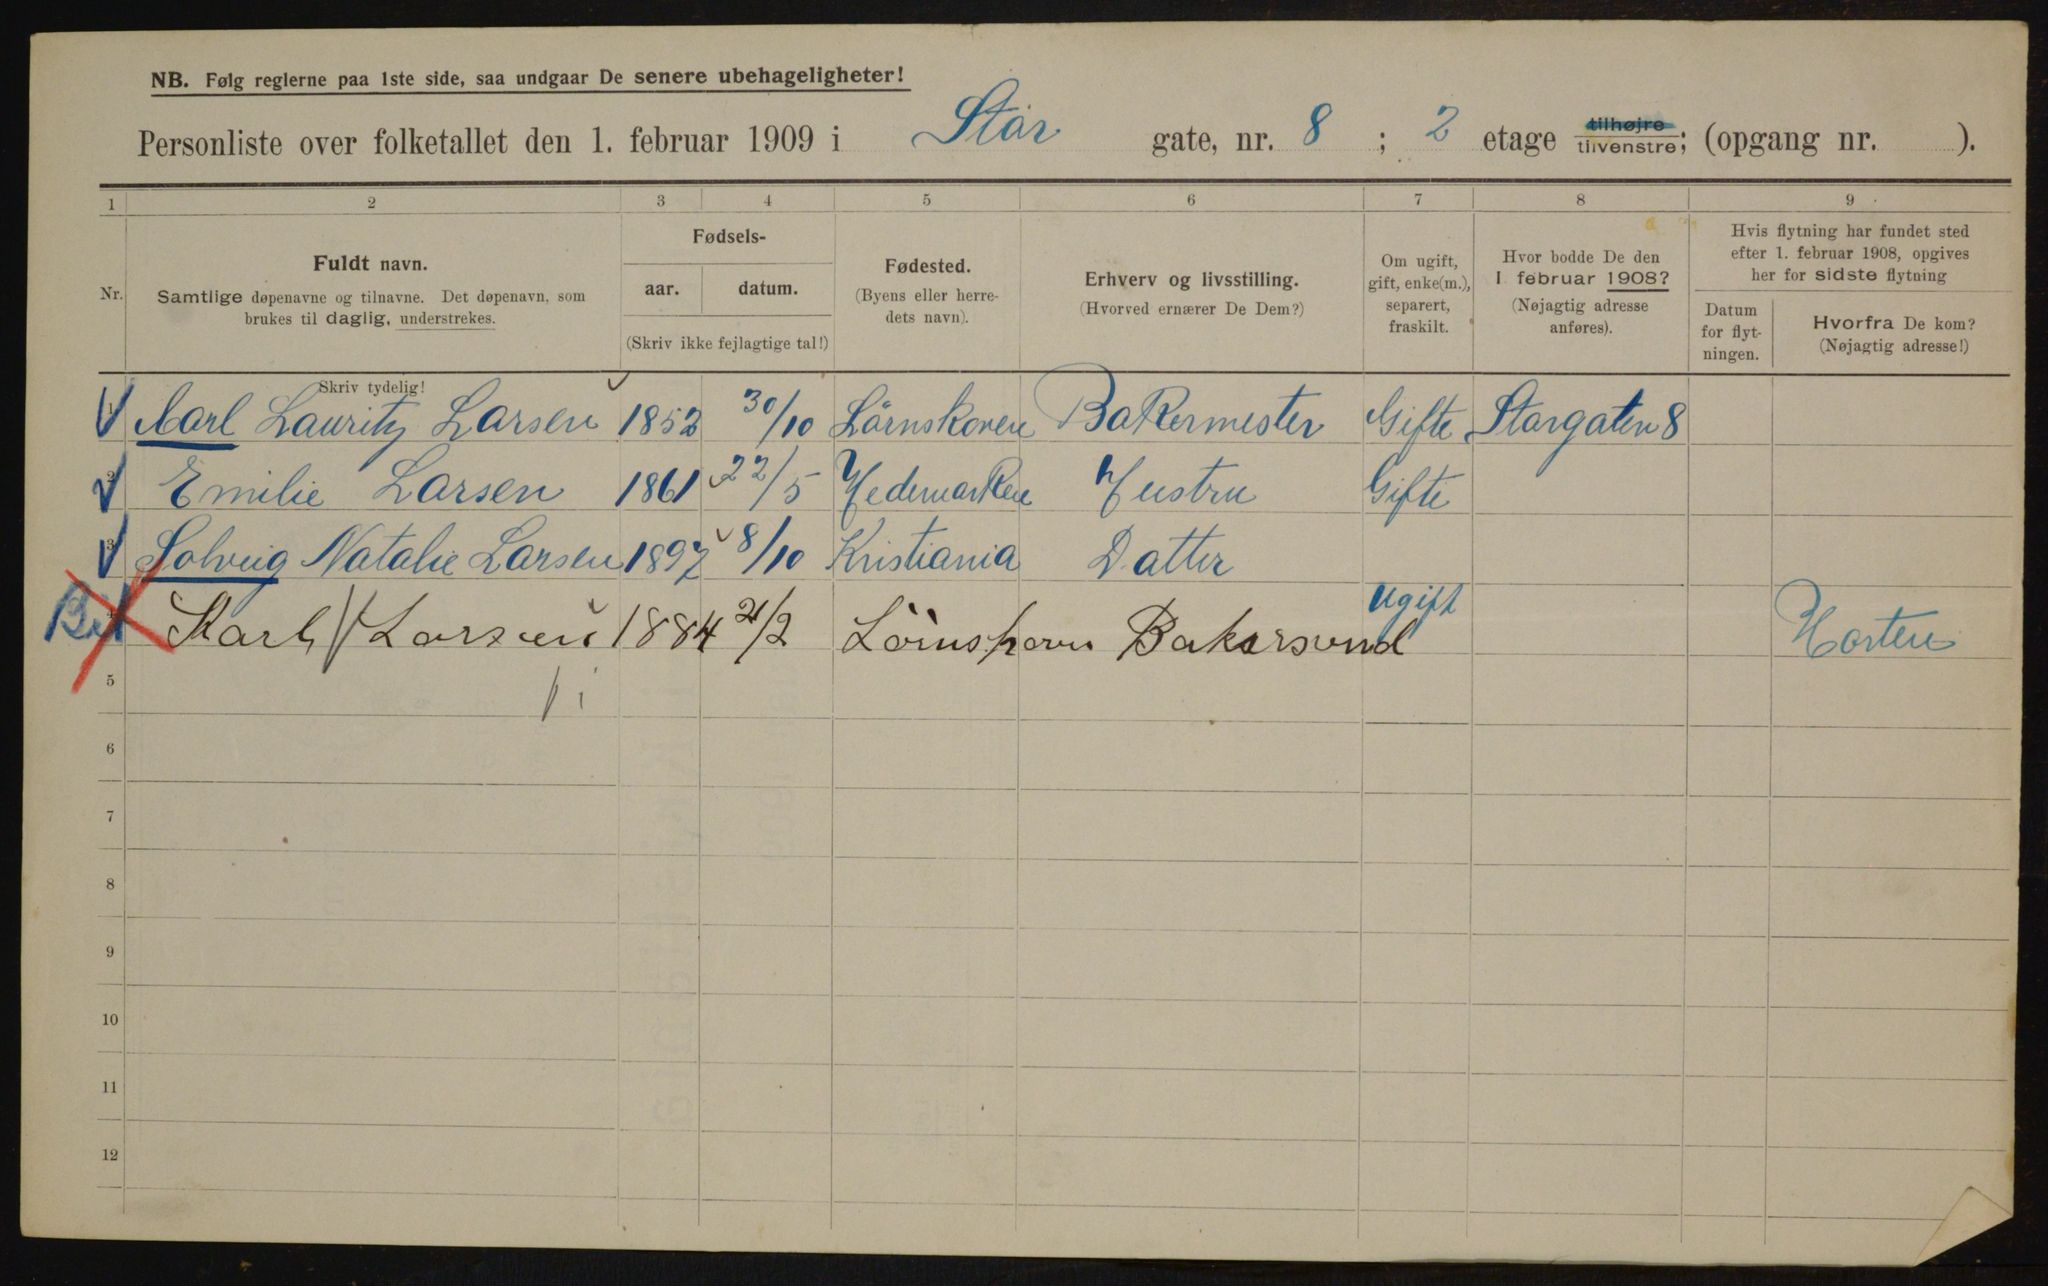 NB. Følg reglerne paa 1ste side, saa undgaar De senere ubehageligheter!
Personliste over folketallet den 1. februar 1909 i Stor gate, nr. 8 ; 2 etage tilhøjre tilvenstre; (opgang nr. ).
1 2 3 4 5 6 7 8 9
Nr.
Fuldt navn.
Samtlige døpenavne og tilnavne. Det døpenavn, som
brukes til daglig, understrekes.
Skriv tydelig!
Fødsels-
aar. datum.
(Skriv ikke fejlagtige tal!)
Fødested.
(Byens eller herre-
dets navn).
Erhverv og livsstilling.
(Hvorved ernærer De Dem?)
Om ugift,
gift, enke(m.),
separert,
fraskilt.
Hvor bodde De den
1 februar 1908?
(Nøjagtig adresse
anføres).
Hvis flytning har fundet sted
efter 1. februar 1908, opgives
her for sidste flytning
Datum
for flyt-
ningen.
Hvorfra De kom?
(Nøjagtig adresse!)
1 Karl Lauritz Larsen 1852 30/10 Lörnskoven Bakermester Gifte Storgaten 8
2 Emilie Larsen 1861 22/5 Hedemarken Hustru Gifte
3 Solveig Natalie Larsen 1897 8/10 Kristiania Datter
4 Karl Larsen 1884 21/2 Lörnskoven Bakersvend Ugift Horten
5
6
7
8
9
10
11
12